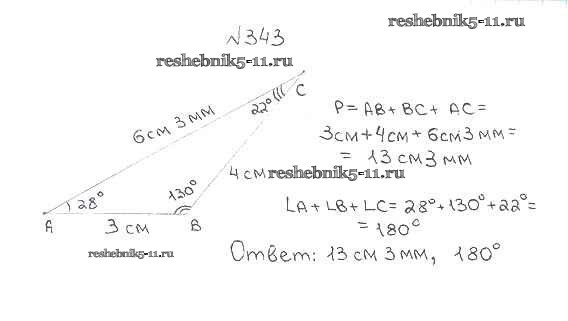 reshebnik5-11.ru
№343
reshebnik5-11.ru
C
22°
6 см 3 мм
P = AB + BC + AC =
3см + 4см + 6см 3 мм =
= 13 см 3 мм
4 см
reshebnik5-11.ru
130°
28°
A
3 см
B
∠A + ∠B + ∠C = 28° + 130° + 22° =
= 180°
reshebnik5-11.ru
Ответ: 13 см 3 мм, 180°